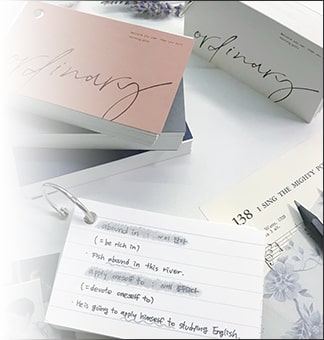 ordinary
ordinary
138 I SING THE MIGHTY PO
abound in : ~이 많다
(=be rich in)
· Fish abound in this river.
apply oneself to :
(=devote oneself to)
· He is going to apply himself to studying English.